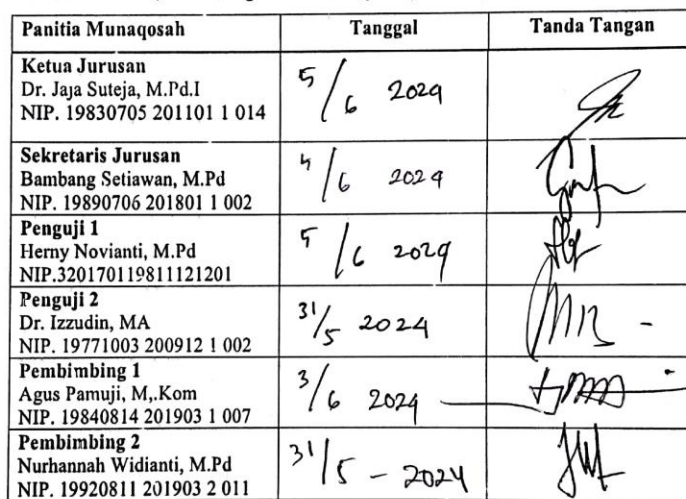 Panitia Munaqosah Tanggal Tanda Tangan
Ketua Jurusan
Dr. Jaja Suteja, M.Pd.I
NIP. 19830705 201101 1 014
5/6 2024
Sekretaris Jurusan
Bambang Setiawan, M.Pd
NIP. 19890706 201801 1 002
4/6 2024
Penguji 1
Herny Novianti, M.Pd
NIP.320170119811121201
5/6 2024
Penguji 2
Dr. Izzudin, MA
NIP. 19771003 200912 1 002
31/5 2024
Pembimbing 1
Agus Pamuji, M,.Kom
NIP. 19840814 201903 1 007
3/6 2024
Pembimbing 2
Nurhannah Widianti, M.Pd
NIP. 19920811 201903 2 011
31/5 - 2024